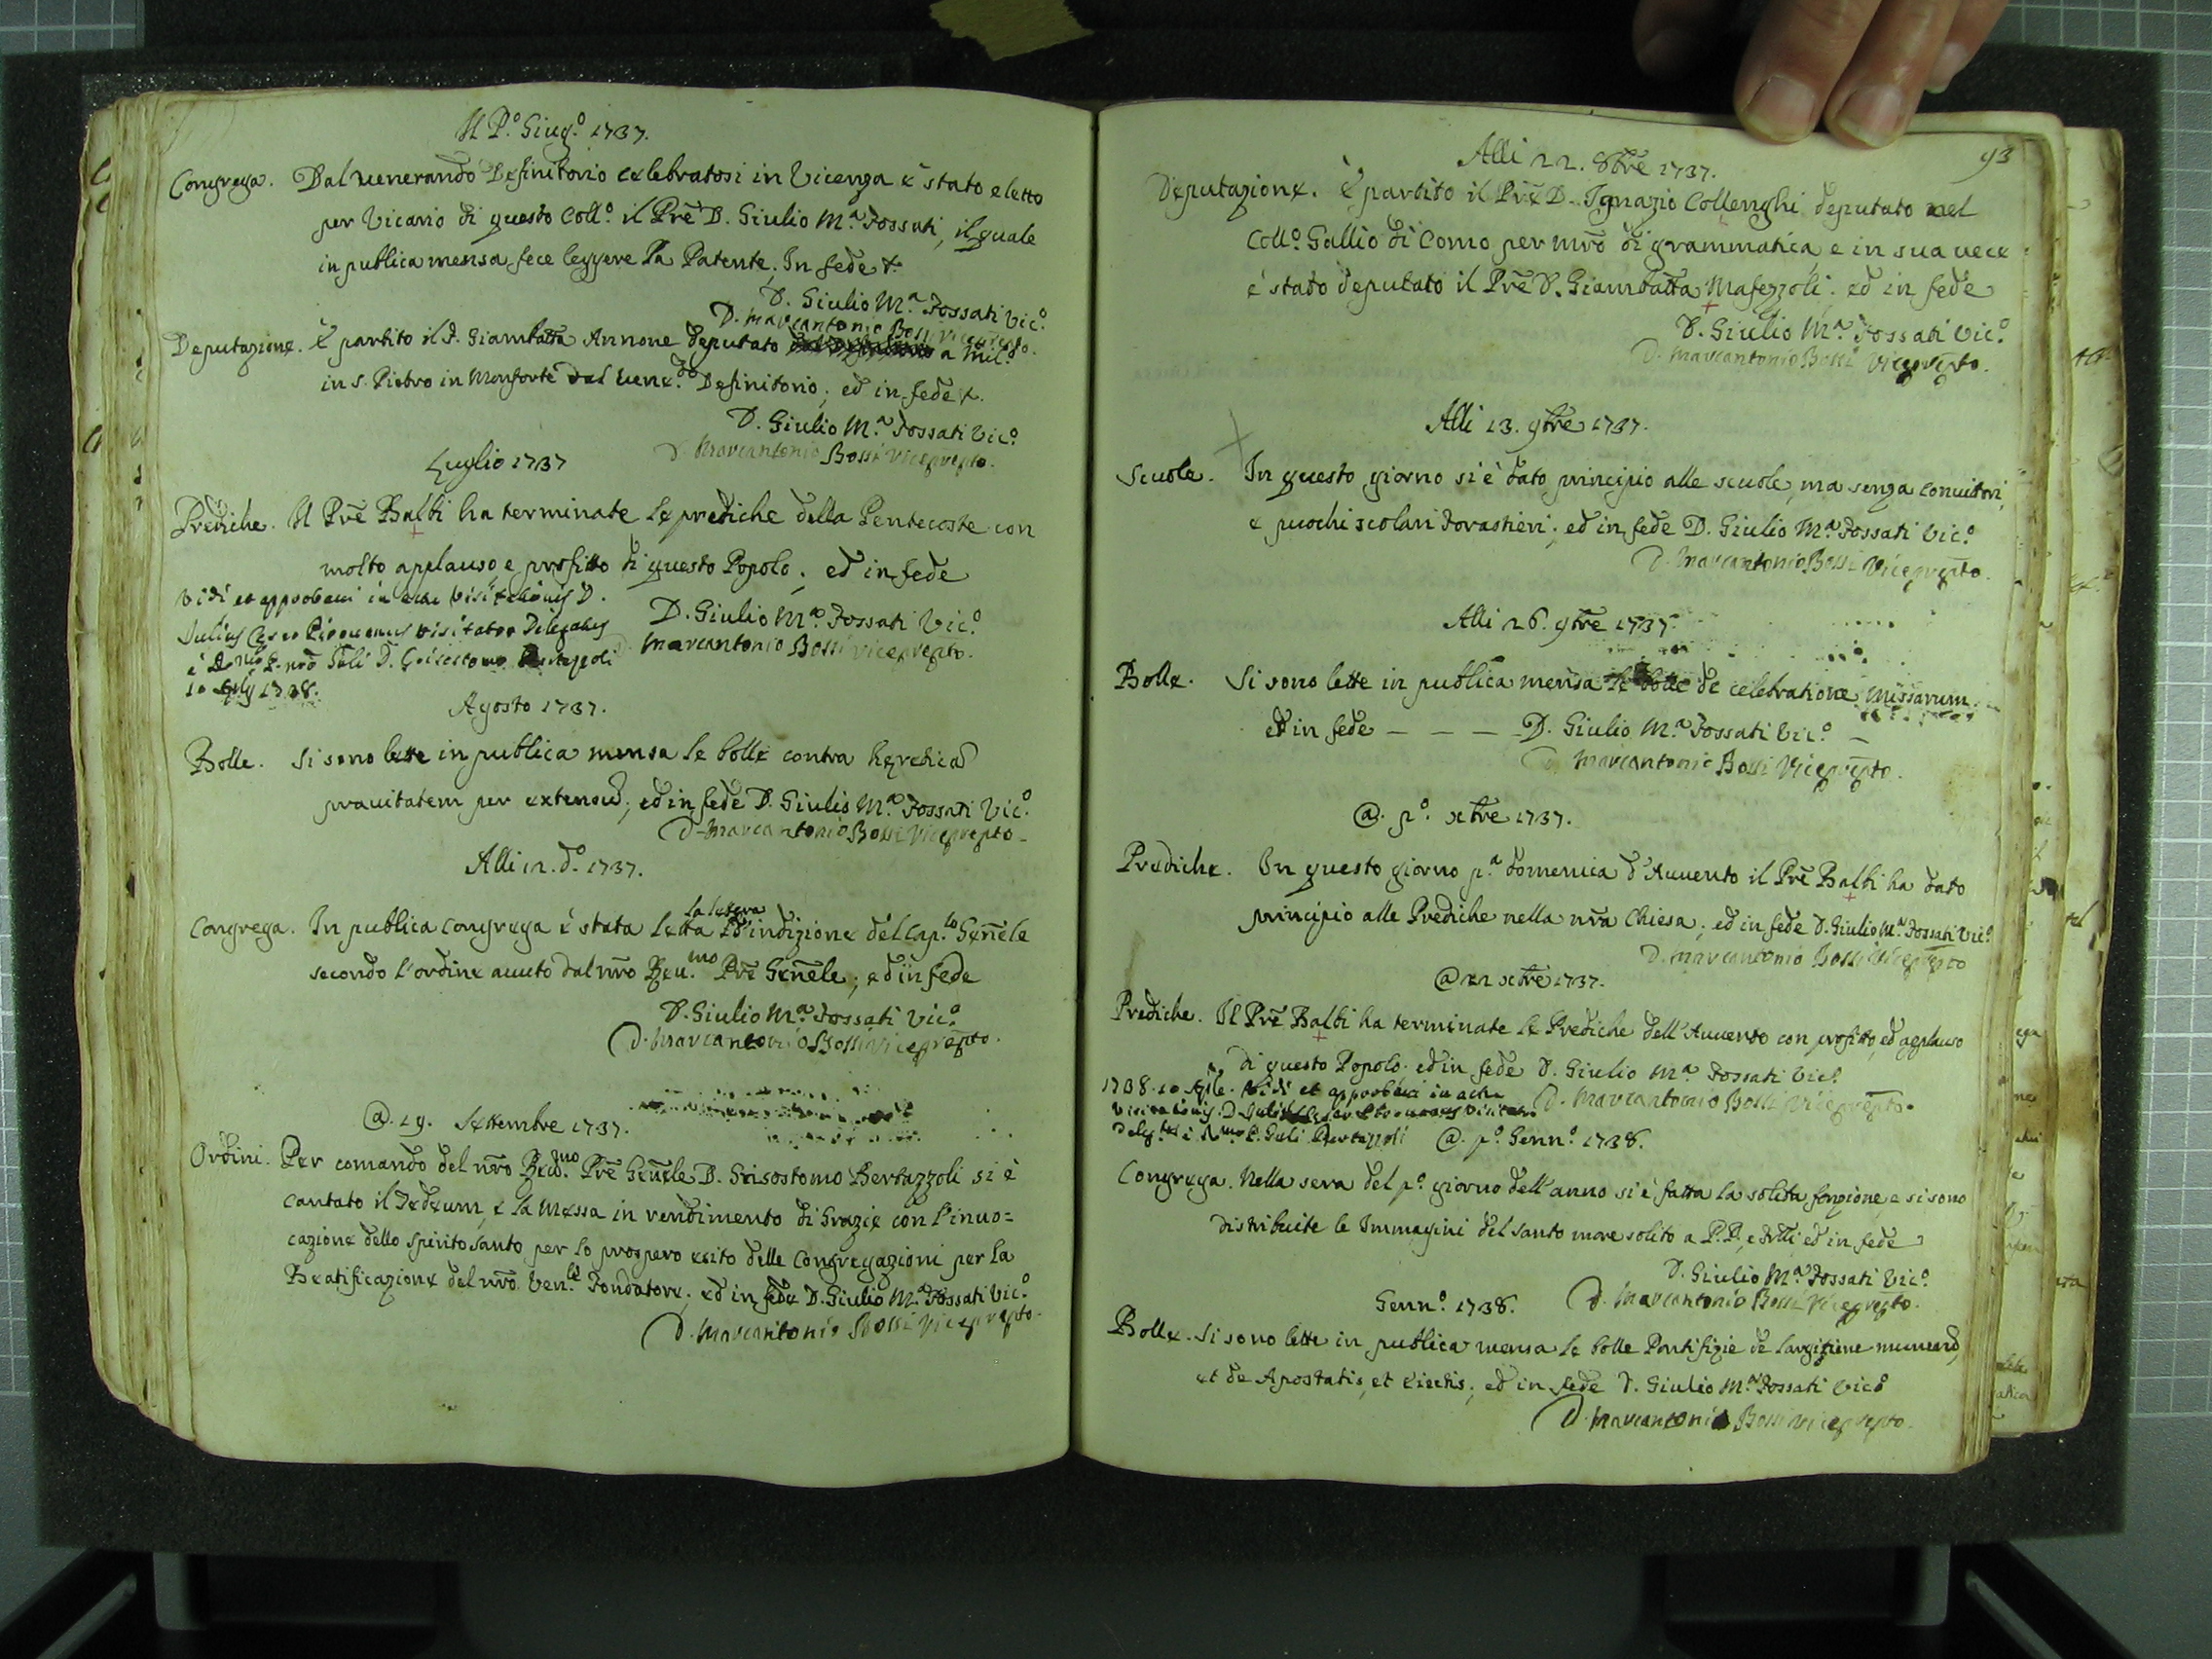 Il P.º Giug.º 1737.
Congrega. Dal venerando Definitorio celebratosi in Vicenza è stato eletto
per Vicario di questo Coll.º il Prē D. Giulio M.ª Fossati, il quale
in publica mensa fece leggere la Patente. In fede &.
D. Giulio M.ª Fossati Vic.º
D. Marcantonio Bossi Viceprepto.
Deputazione. È partito il F. Giambatta Annone deputato a Mil.º
in S. Pietro in Monforte dal Vene.do Definitorio; ed in fede &.
D. Giulio M.ª Fossati Vic.º
D. Marcantonio Bossi Viceprepto.
Luglio 1737
Prediche. Il Prē Balbi ha terminate le prediche della Pentecoste con
molto applauso e profitto di questo Popolo; ed in fede
D. Giulio M.ª Fossati Vic.º
D. Marcantonio Bossi Viceprepto.
Vidi et approbavi in actu Visitationis D.
Julius Visitator Delegatus
1738.
Agosto 1737.
Bolle. Si sono lette in publica mensa le bolle contra hereticā
pravitatem per extensū; ed in fede D. Giulio M.ª Fossati Vic.º
D. Marcantonio Bossi Viceprepto.
Alli 12. d.º 1737.
Congrega. In publica congrega è stata letta la lettera d'indizione del Cap.lo Gēnēle
secondo l'ordine avuto dal nrō Rev.mo Prē Gēnēle; ed in fede
D. Giulio M.ª Fossati Vic.º
D. Marcantonio Bossi Viceprepto.
@. 19. Settembre 1737.
Ordini. Per comando del nrō Rev.mo Prē Gēnēle D. Grisostomo Bertazzoli si è
cantato il Tedeum, e la Messa in rendimento di Grazie con l'invo=
cazione dello Spirito Santo per lo prospero esito delle Congregazioni per la
Beatificazione del nrō Ven.le Fondatore; ed in fede D. Giulio M.ª Fossati Vic.º
D. Marcantonio Bossi Viceprepto.
93
Alli 22. 8bre 1737.
Deputazione. È partito il Prē D. Ignazio Collenghi deputato nel
Coll.º Gallio di Como per mrō di grammatica e in sua vece
è stato deputato il Prē D. Giambatta Mafezzoli; ed in fede
D. Giulio M.ª Fossati Vic.º
D. Marcantonio Bossi Viceprepto.
Alli 13. 9bre 1737.
Scuole. In questo giorno si è dato principio alle scuole, ma senza convitori,
e puochi scolari Forastieri; ed in fede D. Giulio M.ª Fossati Vic.º
D. Marcantonio Bossi Viceprepto.
Alli 26. 9bre 1737
Bolle. Si sono lette in publica mensa le bolle de celebratione Missarum.
ed in fede — — — D. Giulio M.ª Fossati Vic.º —
D. Marcantonio Bossi Viceprepto.
@. p.º xbre 1737.
Prediche. In questo giorno p.ª domenica d'Avvento il Prē Balbi ha dato
principio alle Prediche nella nrā Chiesa; ed in fede D. Giulio M.ª Fossati Vic.º
D. Marcantonio Bossi Viceprepto
@ 22 xbre 1737.
Prediche. Il Prē Balbi ha terminate le Prediche dell'Avvento con profitto, ed applauso
di questo Popolo. ed in fede D. Giulio M.ª Fossati Vic.º
D. Marcantonio Bossi Viceprepto.
1738. 10 Vidi et approbavi in actu
Visitationis D.
@. p.º Genn.º 1738.
Congrega. Nella sera del p.º giorno dell'anno si è fatta la solita fonzione, e si sono
distribuite le Immagini del Santo more solito a P.P., e Frlli ed in fede
D. Giulio M.ª Fossati Vic.º
D. Marcantonio Bossi Viceprepto.
Genn.º 1738.
Bolle. Si sono lette in publica mensa le bolle Pontifizie de largitione munerū,
et de Apostatis, et eiectis; ed in fede D. Giulio M.ª Fossati Vic.º
D. Marcantonio Bossi Viceprepto.